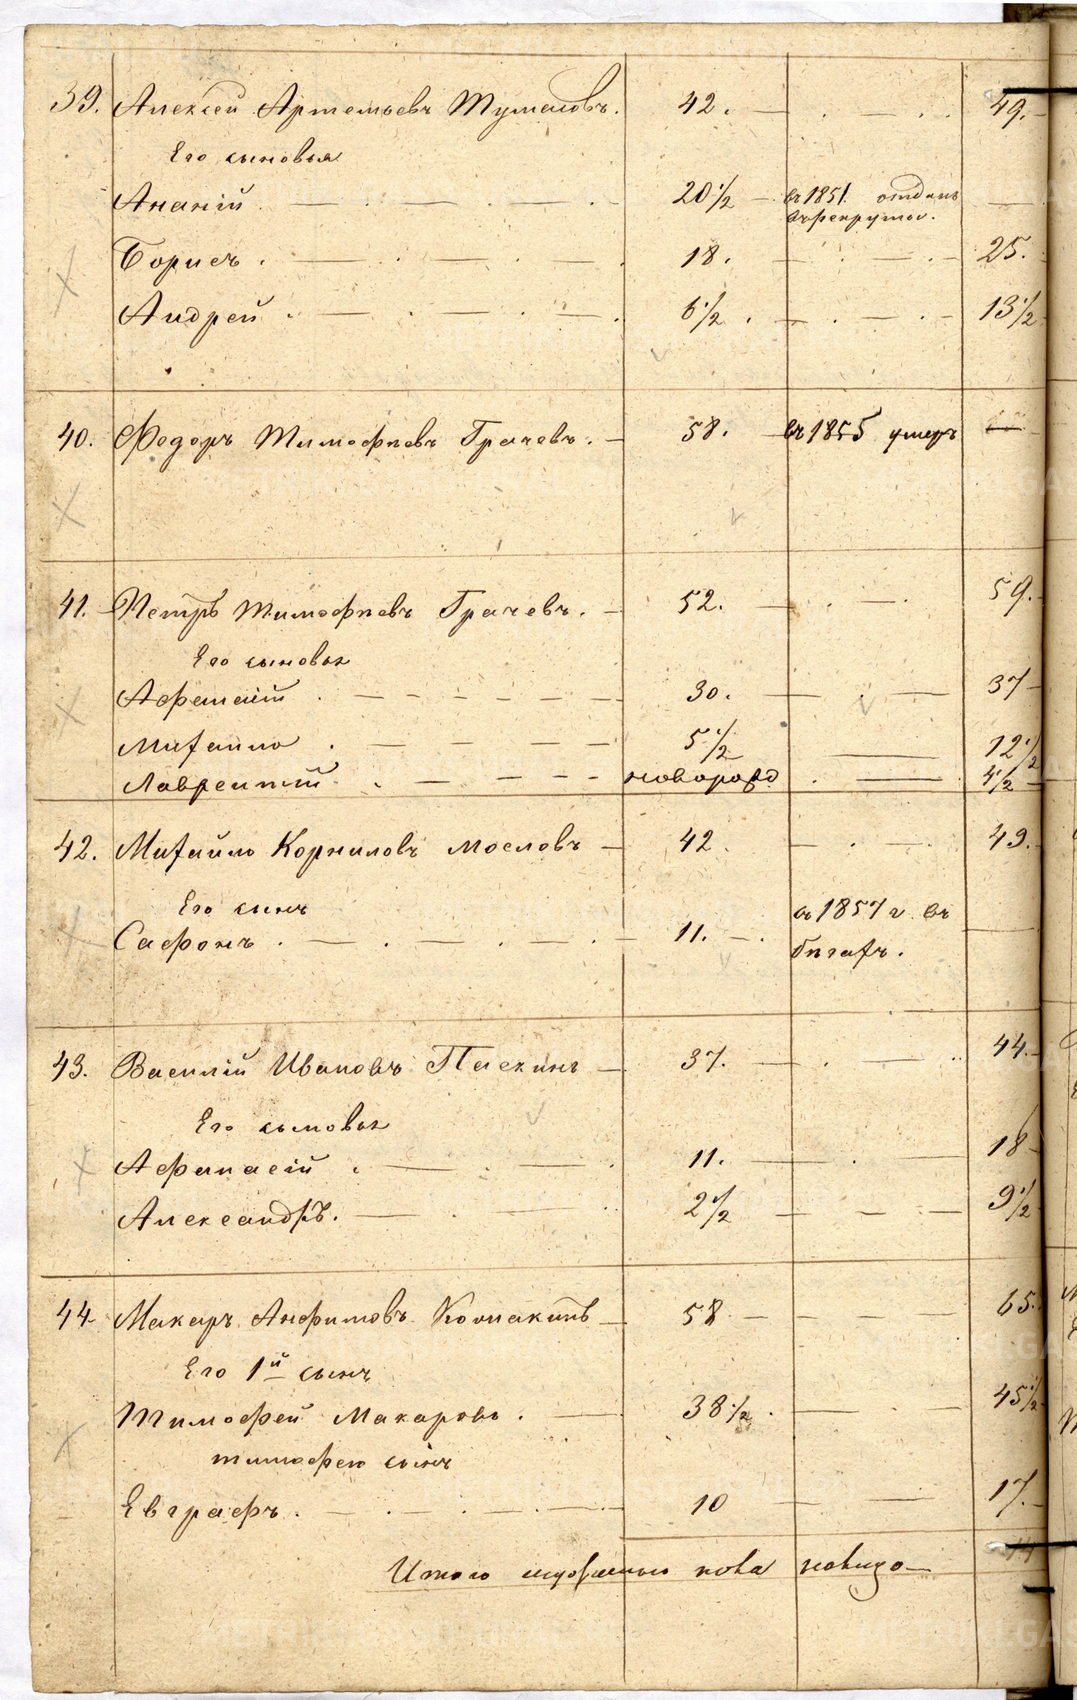 39. Алексей Артемьевъ Тумановъ. 42. 49.
Его сыновья
Ананiй 20½ въ 1851. отданъ
въ рекруты.
Борисъ. 18. 25.
Андрей. 6½. 13½
40. Федоръ Тимофѣевъ Грачевъ. 58. въ 1855 умеръ
41. Петръ Тимофѣевъ Грачевъ. 52. 59.
Его сыновья
Афанасiй. 30. 37
Михаило. 5½ 12½
Лаврентiй новорожд. 4½
42. Михайло Корниловъ Мословъ 42 49.
Его сынъ
Сафонъ. 11. въ 1857 г въ
бѣгахъ.
43. Василiй Ивановъ Паскинъ 37. 44.
Его сыновья
Афанасiй. 11. 18
Александръ. 2½ 9½
44 Макаръ Анфимовъ Колпакинъ 58 65.
Его 1й сынъ
Тимофей Макаровъ. 38½. 45½
тимофея сынъ
Евграфъ. 10 17.
Итого мужеска пола налицо